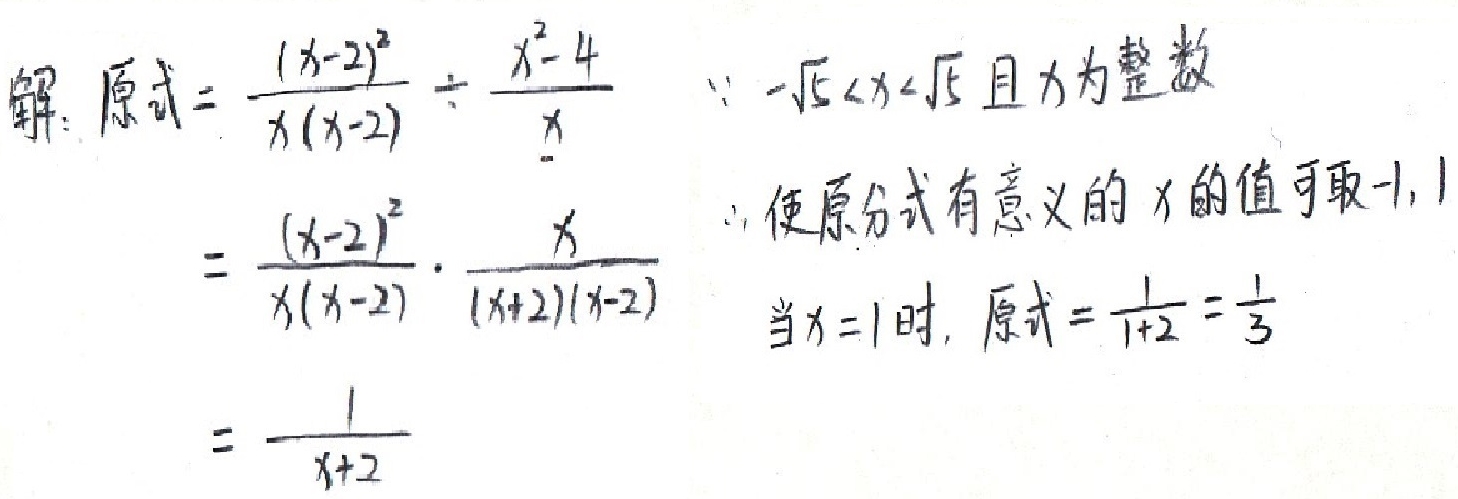 解: 原式 = \frac{(x-2)^2}{x(x-2)} ÷ \frac{x^2-4}{x}
= \frac{(x-2)^2}{x(x-2)} · \frac{x}{(x+2)(x-2)}
= \frac{1}{x+2}
∵ -√5 < x < √5 且 x 为整数
∴ 使原分式有意义的 x 的值可取 -1, 1
当 x = 1 时, 原式 = \frac{1}{1+2} = \frac{1}{3}